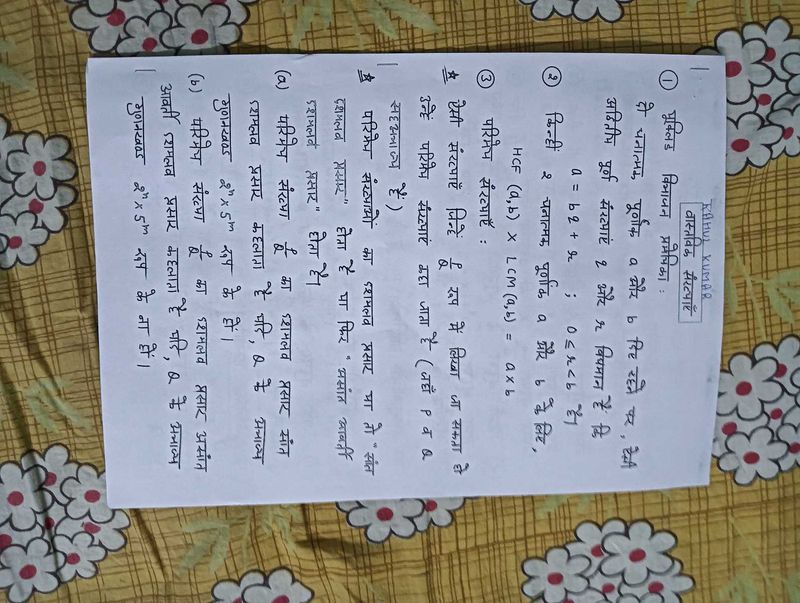 RAHUL KUMAR
वास्तविक संख्याएँ
① यूक्लिड विभाजन प्रमेयिका :
दो धनात्मक पूर्णांक a और b दिए रहने पर, ऐसी
अद्वितीय पूर्ण संख्याएं q और r विद्यमान हैं कि
a = bq + r ; 0 ≤ r < b है।
② किन्हीं 2 धनात्मक पूर्णांक a और b के लिए,
HCF (a,b) × LCM (a,b) = a×b
③ परिमेय संख्याएँ :
★ ऐसी संख्याएँ जिन्हें p/Q रूप में लिखा जा सकता हो
उन्हें परिमेय संख्याएं कहा जाता है (जहाँ P व Q
सहअभाज्य हैं)
★ परिमेय संख्याओं का दशमलव प्रसार या तो "सांत
दशमलव प्रसार" होता है या फिर "असांत आवर्ती
दशमलव प्रसार" होता है।
(a) परिमेय संख्या p/Q का दशमलव प्रसार सांत
दशमलव प्रसार कहलाता है यदि, Q के अभाज्य
गुणनखण्ड 2ⁿ × 5ᵐ रूप के हों।
(b) परिमेय संख्या p/Q का दशमलव प्रसार असांत
आवर्ती दशमलव प्रसार कहलाता है यदि, Q के अभाज्य
गुणनखण्ड 2ⁿ × 5ᵐ रूप के ना हों।